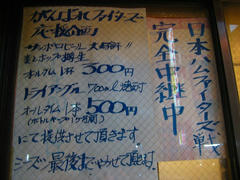 がんばれファイターズ
応援企画
サッポロビール 大好評!!
黒ラベル 樽生
オールタイム 1杯 300円
トライアングル 700ml 焼酎
オールタイム 1本 500円
(ボトルキープ
にて提供させて頂きます
シーズン最後までやらせて頂きます
日本ハムファイターズ戦
完全中継中